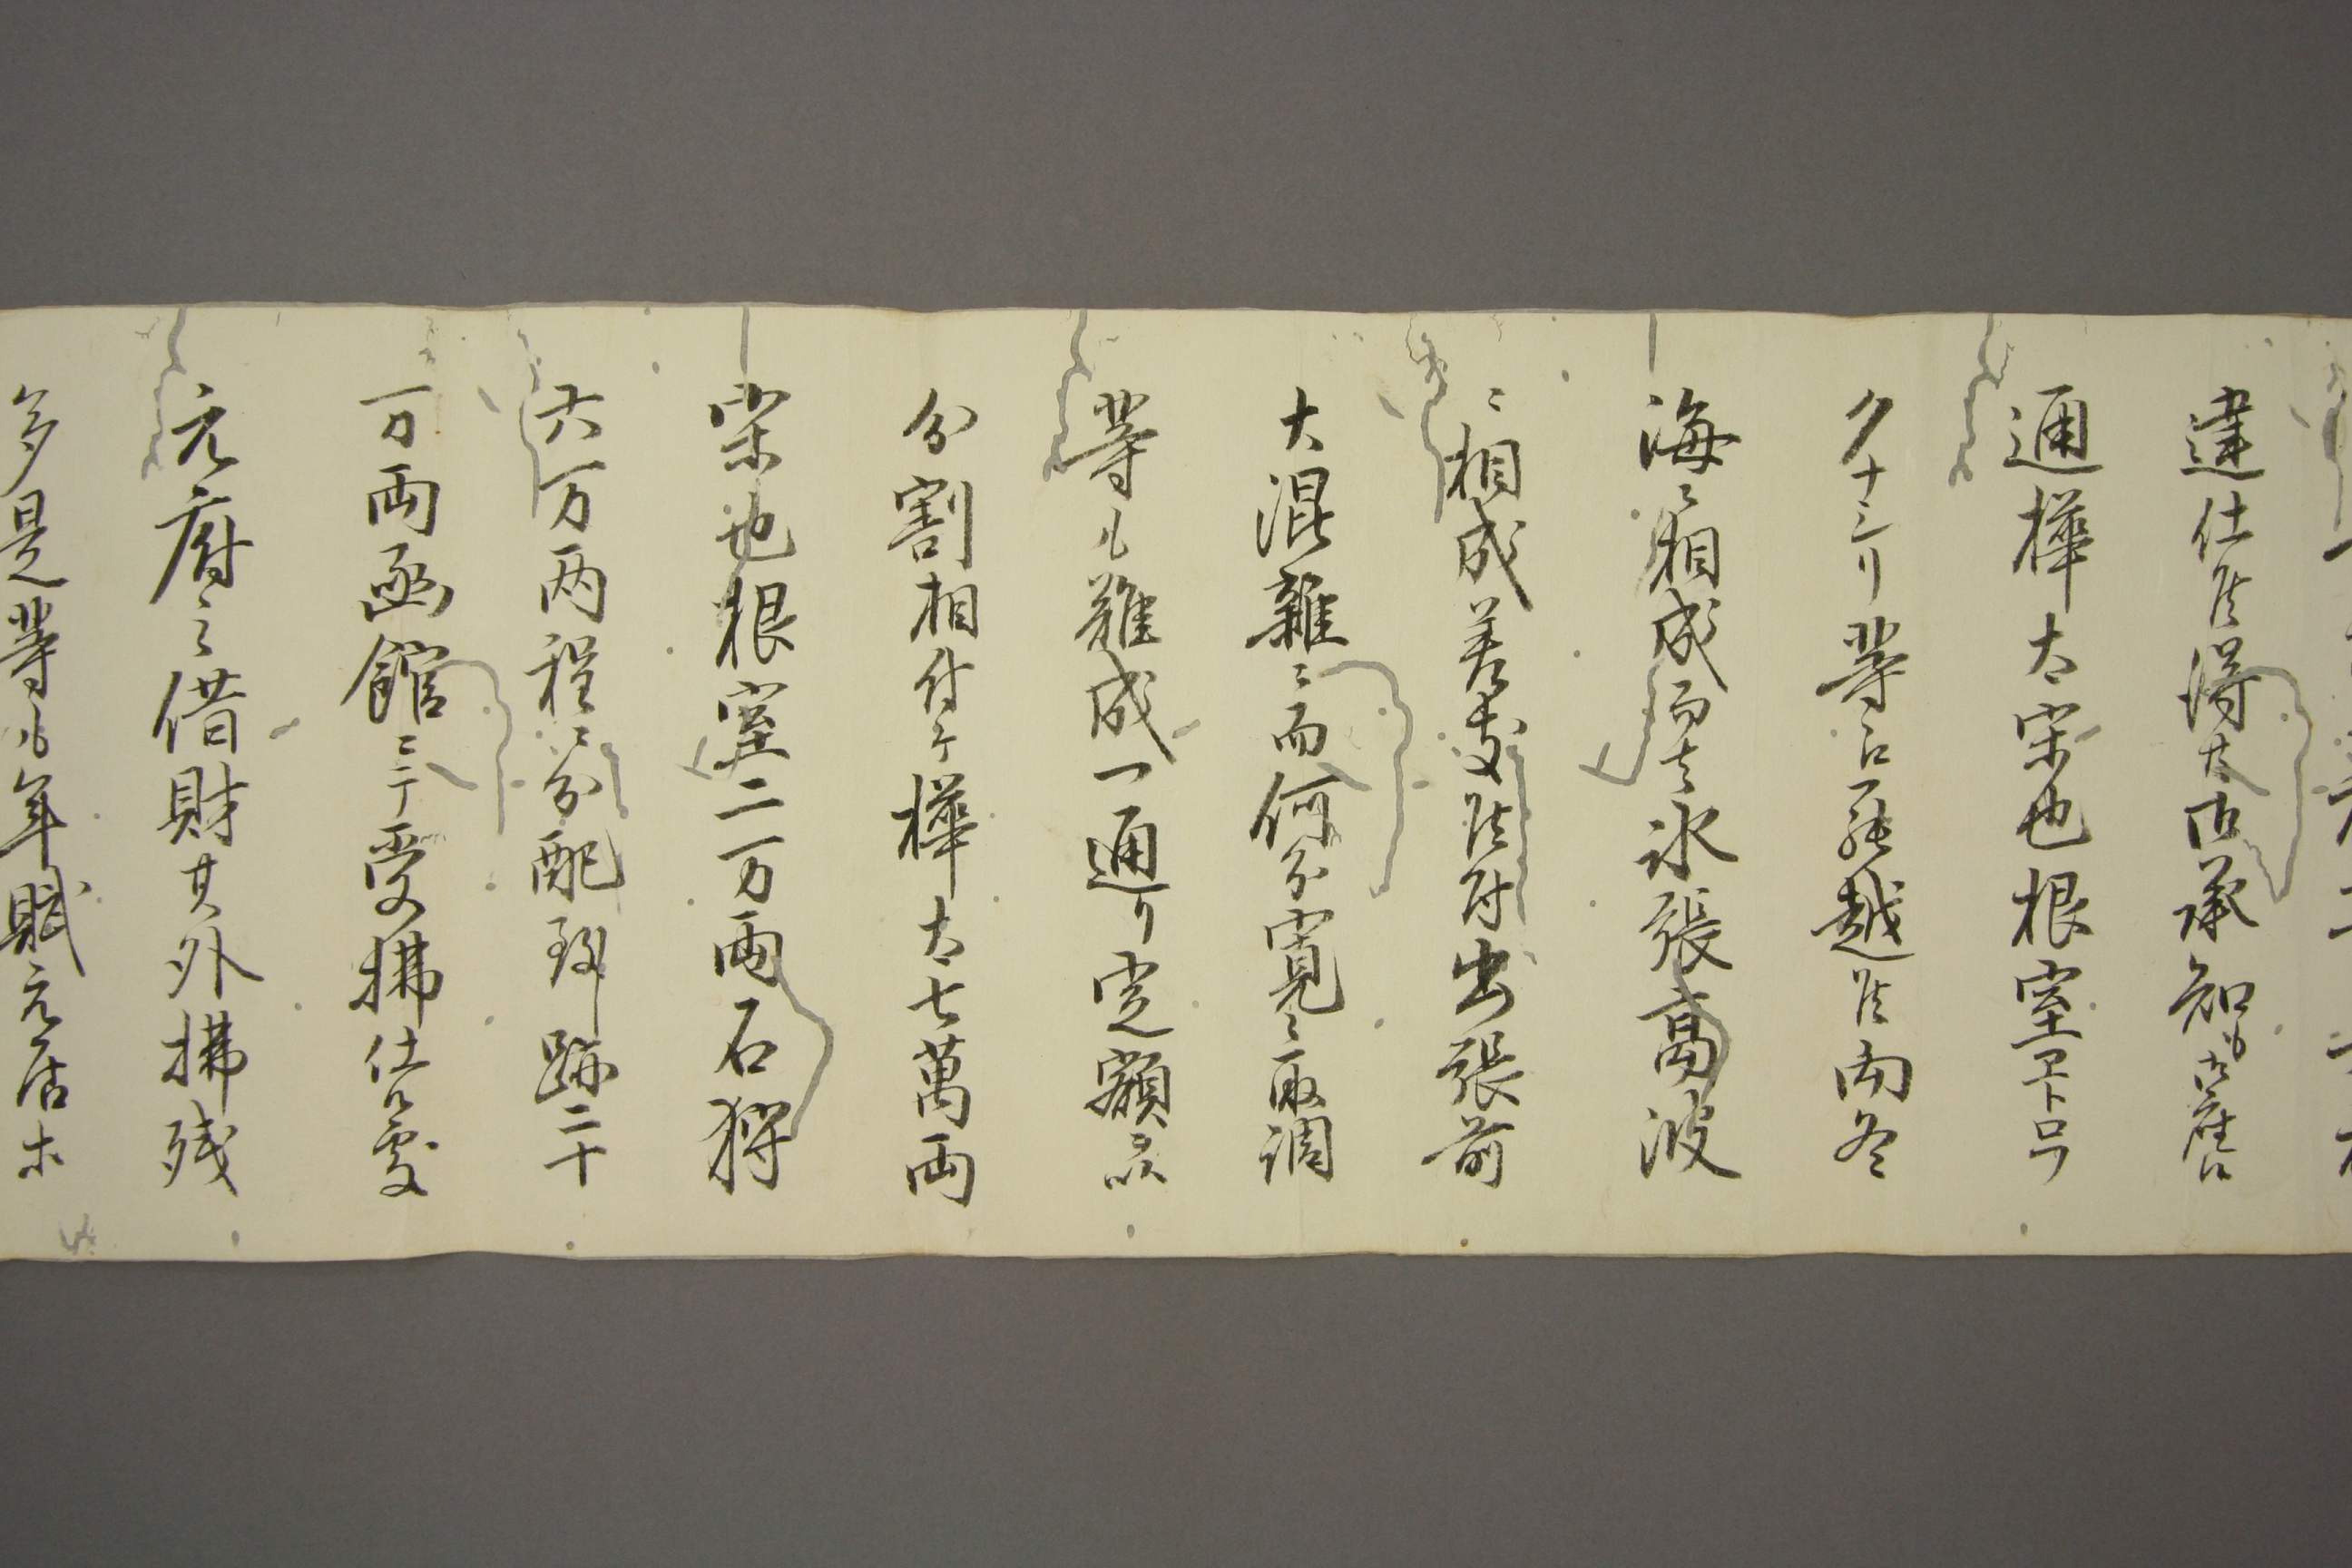 達仕候得共御承知も
通樺太宗也根室ヱトロ
クナシリ等江罷越候両冬
海ニ相成而者氷張高波
ニ相成差支候付出張前
大混雑ニ而何分寛々取調
等も難成一通り定額
分割相付ケ樺太七萬両
宗也根室二万両石狩
六万両程ニ分配致跡二十
万両函館ニテ受拂仕候處
元府之借財其外拂残
多是等も年賦元居